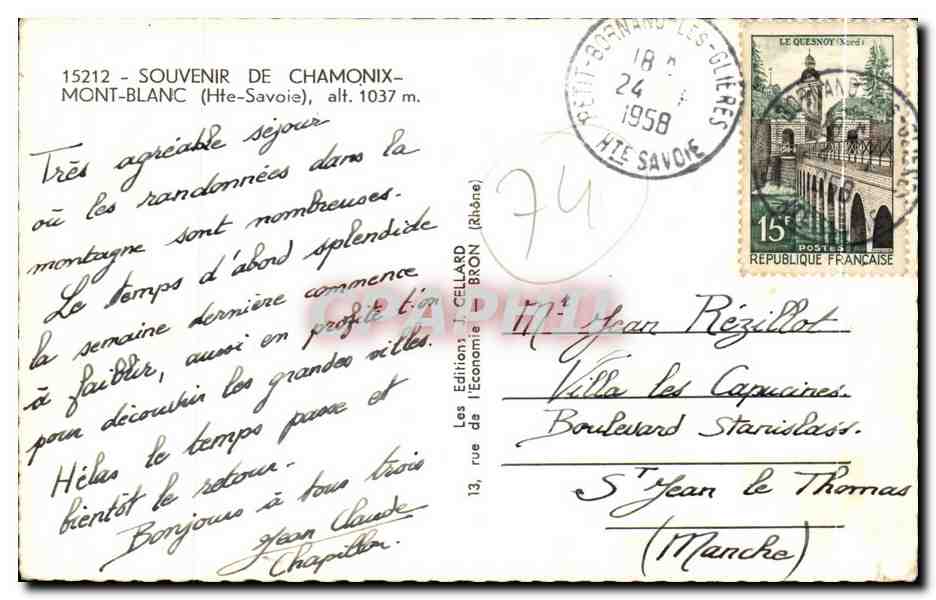 15212 - SOUVENIR DE CHAMONIX-
MONT-BLANC (Hte-Savoie), alt. 1037 m.
Très agréable séjour
où les randonnées dans la
montagne sont nombreuses.
Le temps d'abord splendide
la semaine dernière commence
à faiblir, aussi en profite t'on
pour découvrir les grandes villes.
Hélas le temps passe et
bientôt le retour.
Bonjours à tous trois
Jean Claude
Chapillon.
Les Editions J. CELLARD
13, rue de l'Economie - BRON (Rhône)
74
PETIT-BORNAND-LES-GLIÈRES
18
24
1958
HTE SAVOIE
LE QUESNOY (Nord)
15F
POSTES
REPUBLIQUE FRANÇAISE
CPAPHIL
Mr Jean Rézillot
Villa les Capucines.
Boulevard Stanislass.
St Jean le Thomas
(Manche)